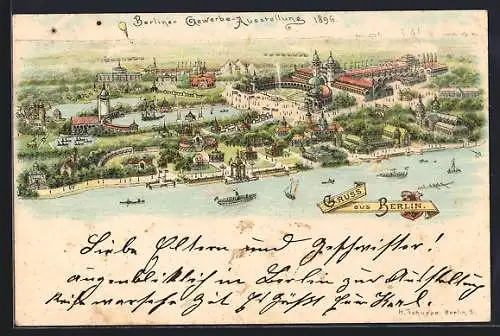 Berliner Gewerbe-Ausstellung 1896.
GRUSS
aus BERLIN.
Liebe Eltern und Geschwister!
augenblicklich in Berlin zur Ausstellung
Gut Es Grüßt Euer Karl.
H. Schuppe Berlin S.